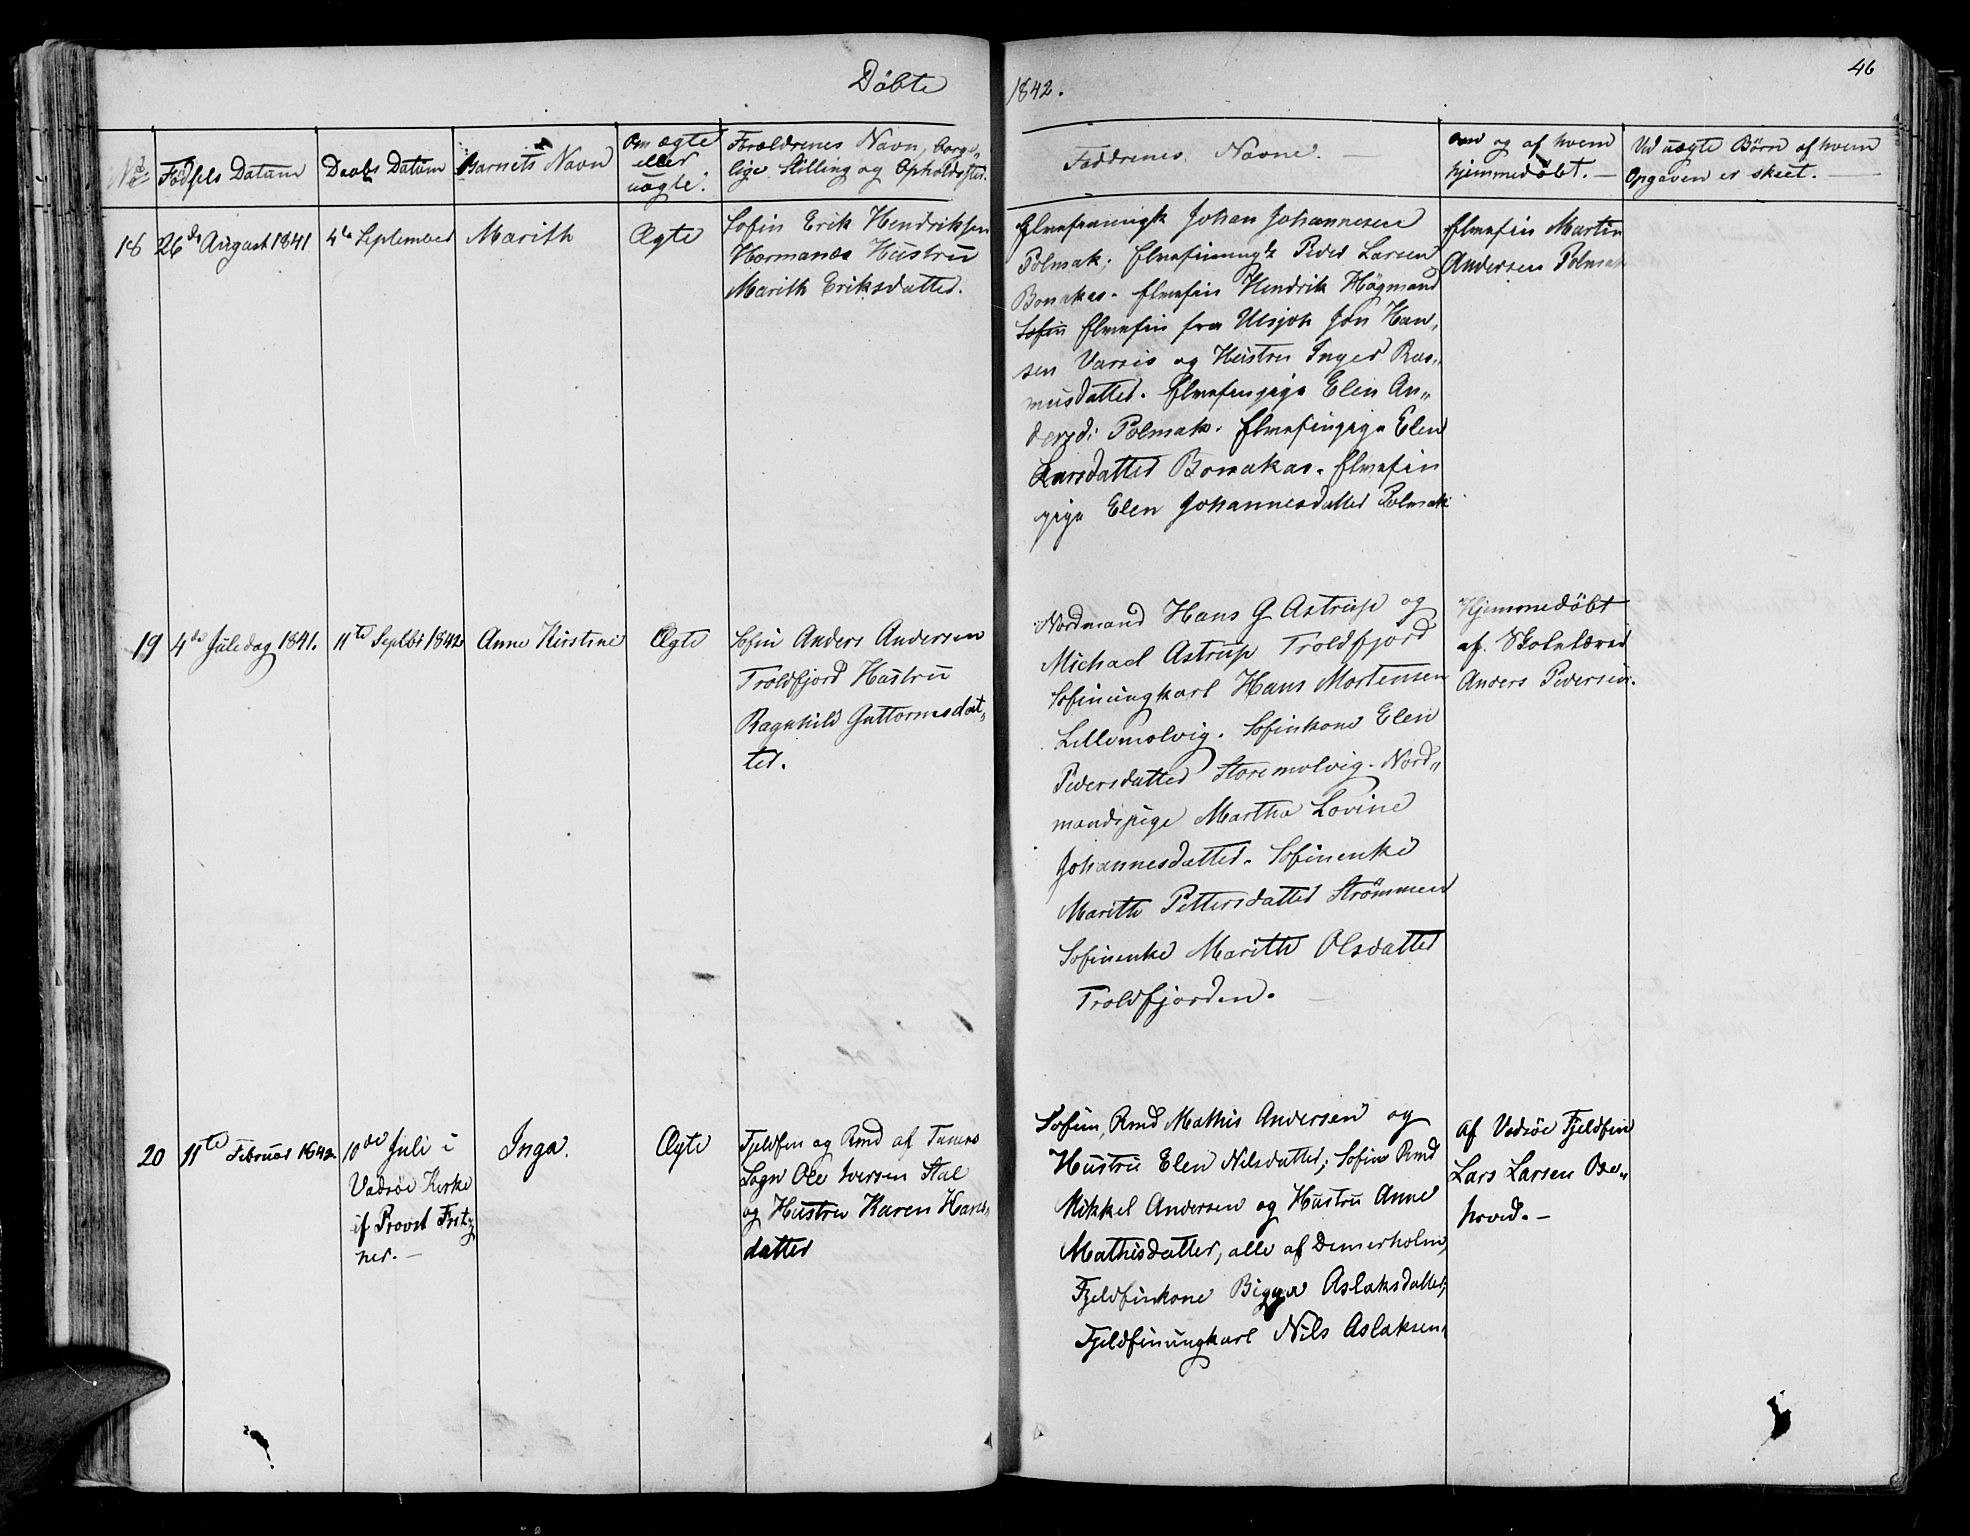 Döbte
1842.
46
No
Födsels Datum
Daabs Datum
Barnets Navn
Om ægte
eller
uægte.
Forældrenes Navn, borge„
lige Stilling og Opholdssted.
Faddrenes Navne. —
om og af hvem
hjemmedöbt. —
Ved uægte Börn af hvem
Opgaven er skeet. —
18
26de August 1841
4de September
Marith
Ægte
Söfin Erik Hendriksen
Hermanæs Hustru
Marith Eriksdatter.
Elvefinungk Johan Johannesen
Polmak; Elvefinungk Peder Larsen
Bonakas. Elvefin Hendrik Högmand
Elvefin fra Utsjok Jon Han„
sen Varsis og Hustru Inger Ras„
musdatter. Elvefinpige Elen An„
dersd: Polmak. Elvefinpige Elen
Larsdatter Bonakas. Elvefin
pige Elen Johannesdatter Polmak
Elvefin Martin
Andersen Polmak
19
4de Juledag 1841.
11te Septbr 1842
Anne Kirstine
Ægte
Söfin Anders Andersen
Troldfjord Hustru
Ragnhild Guttormsdat„
ter.
Nordmand Hans G Astrup og
Michael Astrup Troldfjord
Söfinungkarl Hans Mortensen
Lillemolvig. Söfinkone Elen
Pedersdatter Storemolvig. Nord„
mandspige Martha Lovine
Johannesdatter. Söfinenke
Marith Pettersdatter Strömmen
Söfinenke Marith Olsdatter
Troldfjorden.
Hjemmedöbt
af Skolelærer
Anders Pedersen.
20
11te Februar 1842.
10de Juli i
Vadsöe Kirke
af Provst Fritz
ner. —
Inga.
Ægte
Fjeldfin og Rmd af Tanens
Sogn Ole Iversen Stal
og Hustru Karen Hans„
datter
Söfin, Rmd Mathis Andersen og
Hustru Elen Nilsdatter; Söfin Rmd
Mikkel Andersen og Hustru Anne
Mathisdatter, alle af Demerholm,
Fjeldfinkone Bigga Aslaksdatter,
Fjeldfinungkarl Nils Aslaksen.
Af Vadsöe Fjeldfin
Lars Larsen Oxe„
hoved. —